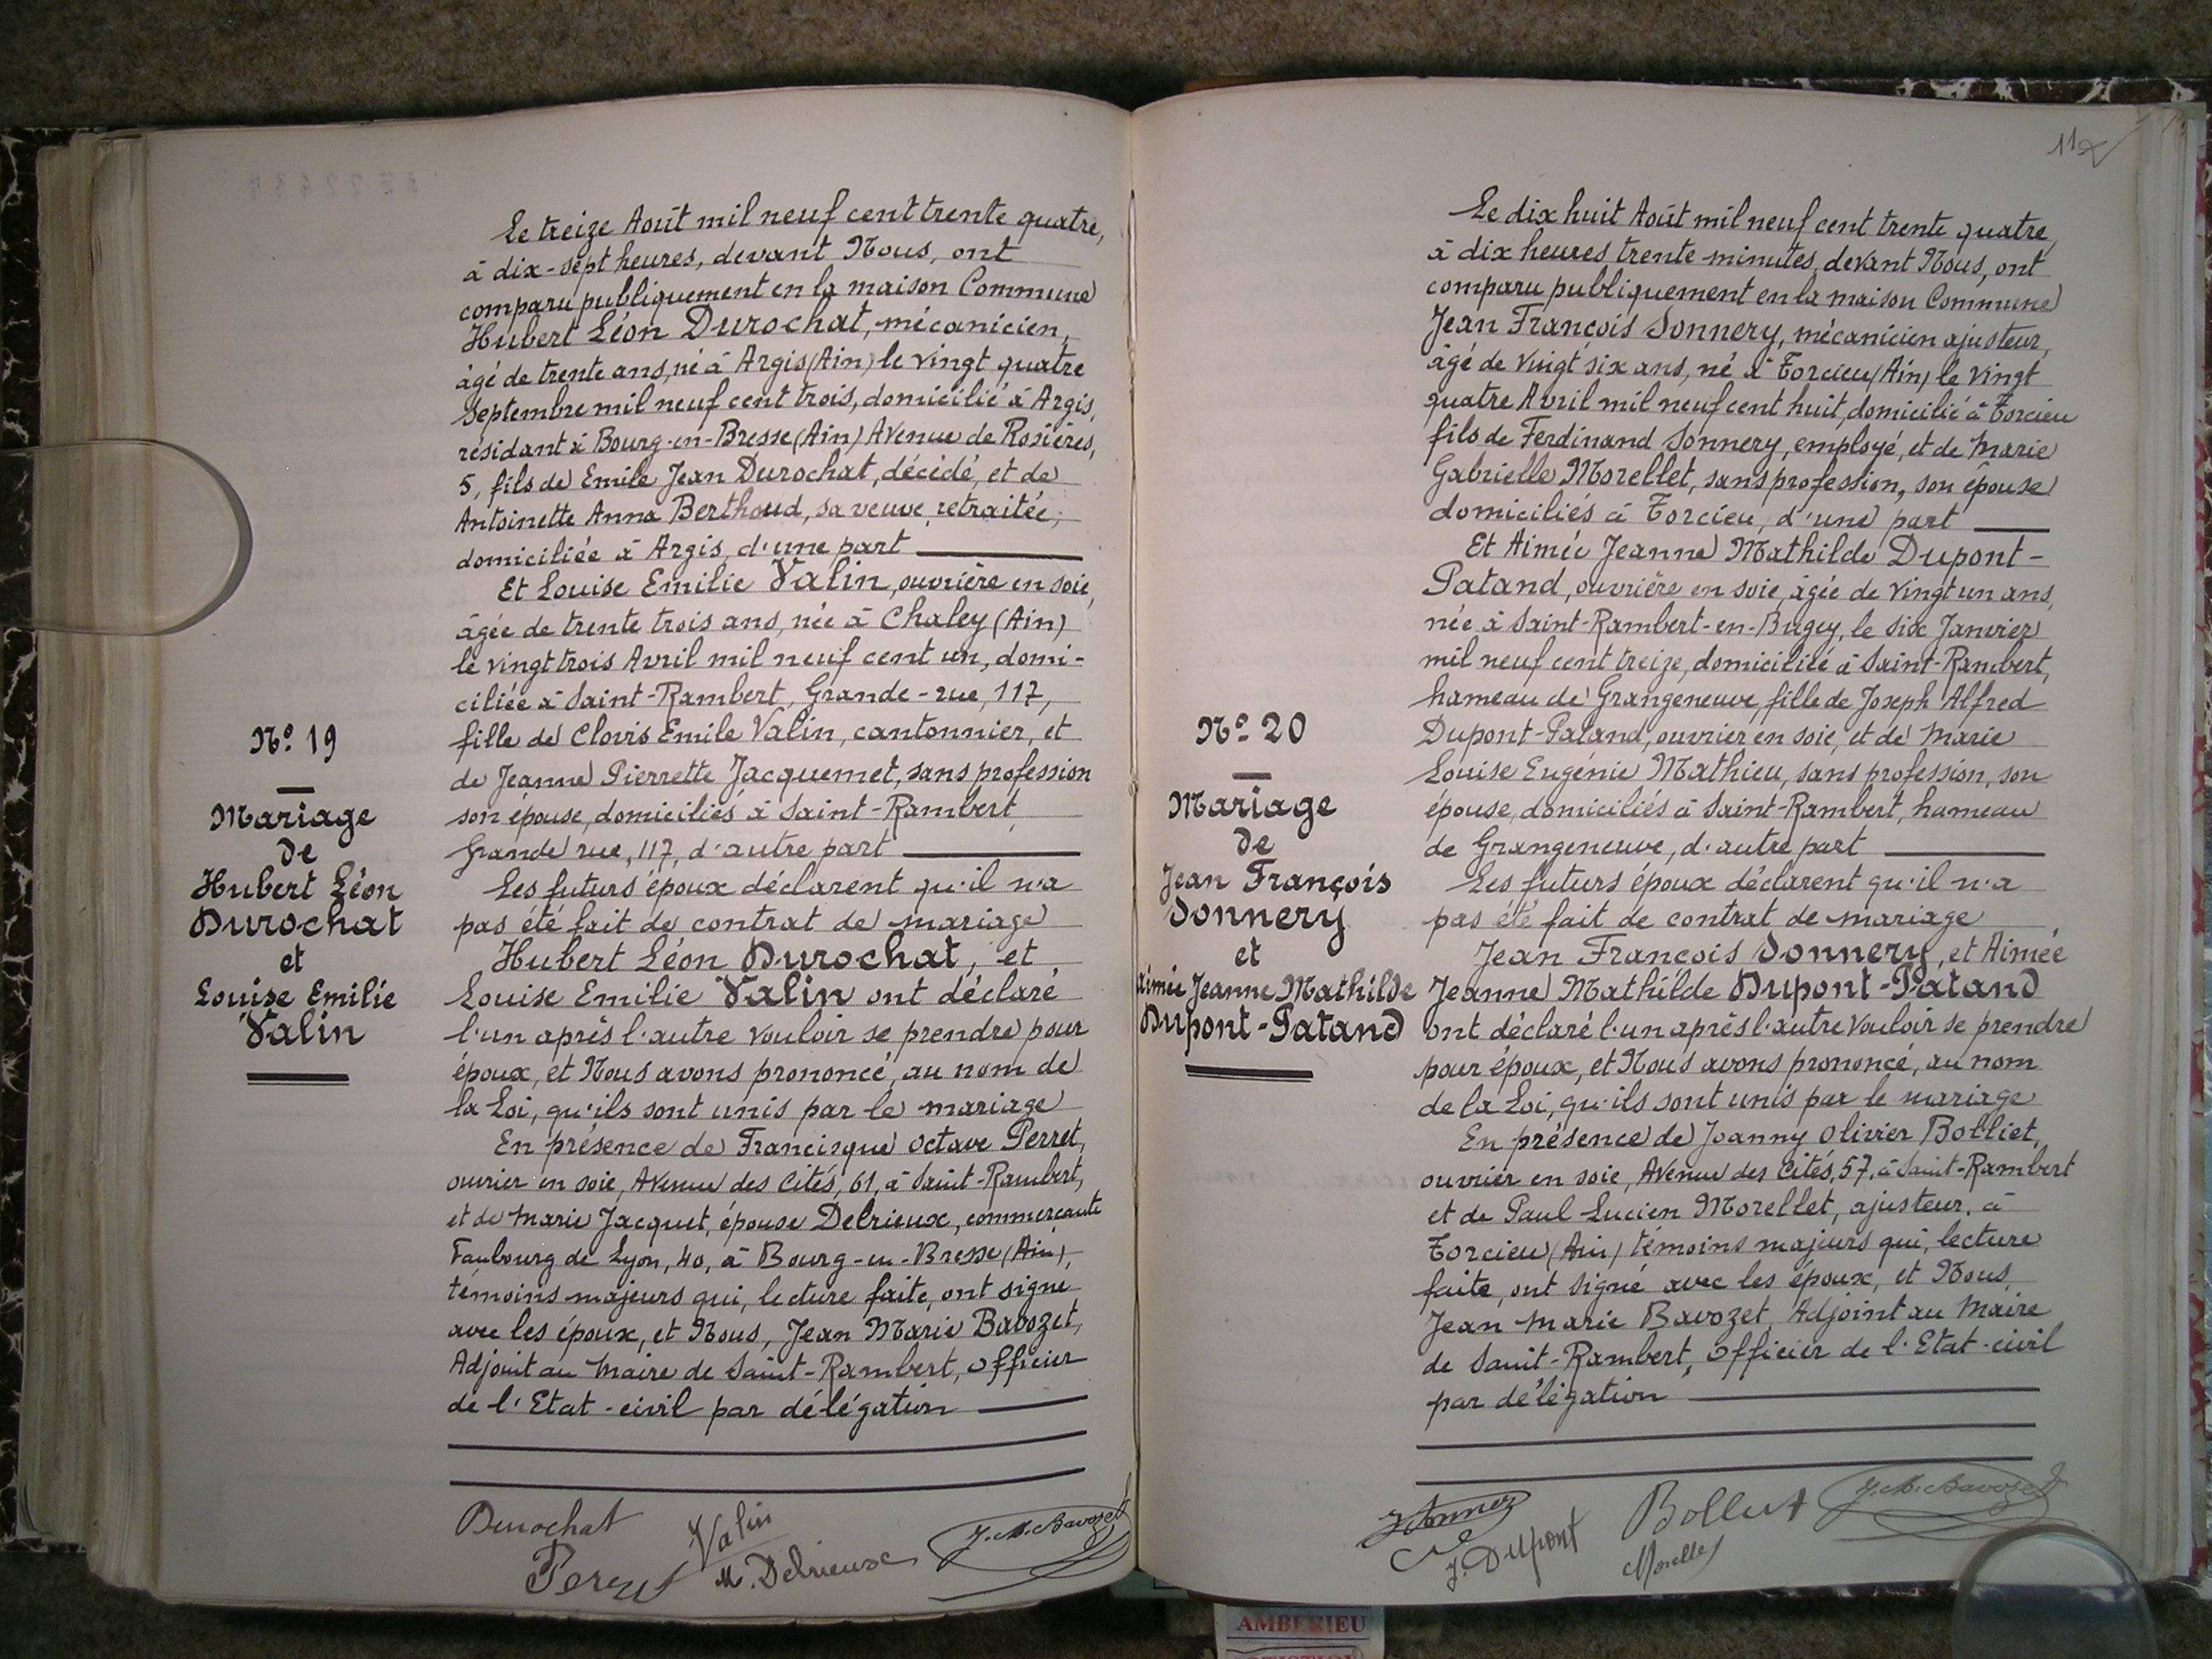 Le treize Août mil neuf cent trente quatre,
à dix-sept heures, devant Nous, ont
comparu publiquement en la maison Commune
Hubert Léon Durochat, mécanicien,
âgé de trente ans, né à Argis (Ain) le vingt quatre
Septembre mil neuf cent trois, domicilié à Argis,
résidant à Bourg-en-Bresse (Ain) Avenue de Rosières,
5, fils de Emile Jean Durochat, décédé, et de
Antoinette Anna Berthoud, sa veuve, retraitée,
domiciliée à Argis, d'une part
Et Louise Emilie Valin, ouvrière en soie,
âgée de trente trois ans, née à Chaley (Ain)
le vingt trois Avril mil neuf cent un, domi-
ciliée à Saint-Rambert, Grande-rue, 117,
fille de Clovis Emile Valin, cantonnier, et
de Jeanne Pierrette Jacquemet, sans profession
son épouse, domiciliés à Saint-Rambert,
Grande rue, 117, d'autre part
Les futurs époux déclarent qu'il n'a
pas été fait de contrat de mariage
Hubert Léon Durochat, et
Louise Emilie Valin ont déclaré
l'un après l'autre vouloir se prendre pour
époux, et Nous avons prononcé, au nom de
la Loi, qu'ils sont unis par le mariage
En présence de Francisque Octave Perret,
ouvrier en soie, Avenue des Cités, 61, à Saint-Rambert,
et de Marie Jacquet, épouse Delrieux, commerçante
Faubourg de Lyon, 40, à Bourg-en-Bresse (Ain),
témoins majeurs qui, lecture faite, ont signé
avec les époux, et Nous, Jean Marie Bavozet,
Adjoint au Maire de Saint-Rambert, Officier
de l'Etat-civil par délégation
Nº 19
Mariage
de
Hubert Léon
Durochat
et
Louise Emilie
Valin
Durochat
Valin
J. M. Bavozet
Perret
M. Delrieux
Le dix huit Août mil neuf cent trente quatre,
à dix heures trente minutes, devant Nous, ont
comparu publiquement en la maison Commune
Jean François Sonnery, mécanicien ajusteur,
âgé de vingt six ans, né à Torcieu (Ain) le vingt
quatre Avril mil neuf cent huit, domicilié à Torcieu
fils de Ferdinand Sonnery, employé, et de Marie
Gabrielle Morellet, sans profession, son épouse
domiciliés à Torcieu, d'une part
Et Aimée Jeanne Mathilde Dupont-
Patand, ouvrière en soie, âgée de vingt un ans,
née à Saint-Rambert-en-Bugey, le six Janvier
mil neuf cent treize, domiciliée à Saint-Rambert,
hameau de Grangeneuve, fille de Joseph Alfred
Dupont-Patand, ouvrier en soie, et de Marie
Louise Eugénie Mathieu, sans profession, son
épouse, domiciliés à Saint-Rambert, hameau
de Grangeneuve, d'autre part
Les futurs époux déclarent qu'il n'a
pas été fait de contrat de mariage
Jean François Sonnery, et Aimée
Jeanne Mathilde Dupont-Patand
ont déclaré l'un après l'autre vouloir se prendre
pour époux, et Nous avons prononcé, au nom
de la Loi, qu'ils sont unis par le mariage
En présence de Joanny Olivier Bolliet,
ouvrier en soie, Avenue des Cités, 57, à Saint-Rambert
et de Paul Lucien Morellet, ajusteur, à
Torcieu (Ain) témoins majeurs qui, lecture
faite, ont signé avec les époux, et Nous,
Jean Marie Bavozet, Adjoint au Maire
de Saint-Rambert, Officier de l'Etat-civil
par délégation
Nº 20
Mariage
de
Jean François
Sonnery
et
Aimée Jeanne Mathilde
Dupont-Patand
J. Dupont
Bolliet
Morellet
J. M. Bavozet
AMBERIEU